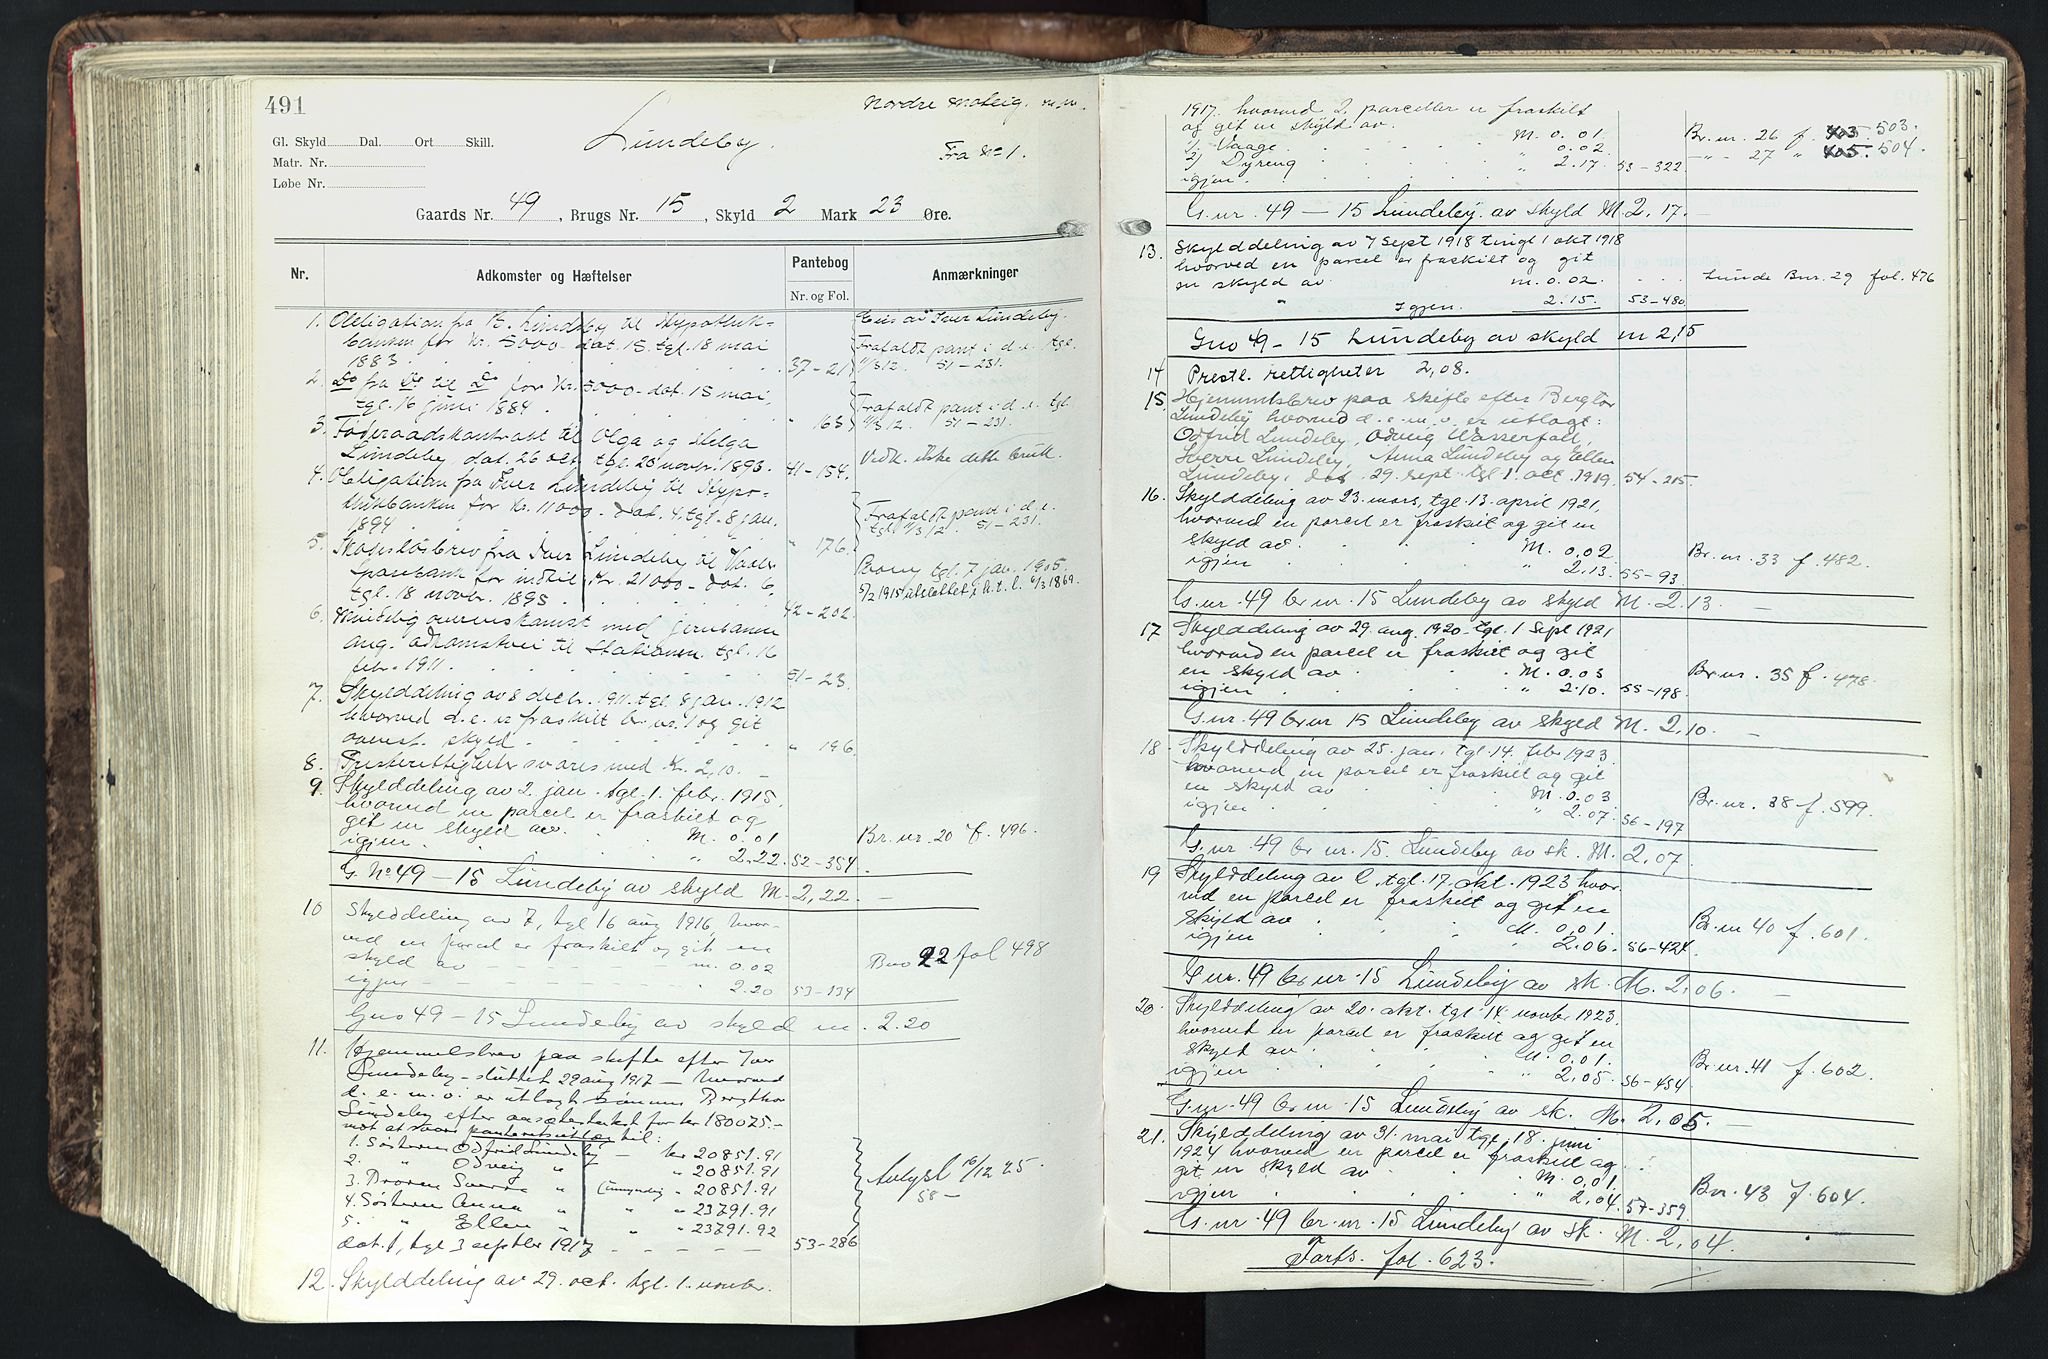 491
Lundeby.
Nordre moteig. m.m.
Fra No 1.
Gl. Skyld Dal. Ort Skill.
Matr. Nr.
Løbe Nr.
Gaards Nr. 49, Brugs Nr. 15, Skyld 2 Mark 23 Øre.
Nr. Adkomster og Hæftelser Pantebog Anmærkninger
Nr. og Fol.
1. Obligation fra K. Lundeby til Hypothek- Eies av Iver Lundeby.
banken for Kr. 5000 - dat. 15. tgl. 18 mai Frafaldt pant i d.e. tgl.
1883. 37-21 11/3 12. 51-231.
2. Do fra Do til Do for Kr. 5000 - dat. 15 mai,
tgl. 16 juni 1884. " 163 Frafaldt pant i d.e. tgl.
11/3 12. 51-231.
3. Føderaadskontrakt til Olga og Helga
Lundeby, dat. 26 okt. tgl. 20 novr. 1893. 41-154. Vedk. ikke dette bruk.
4. Obligation fra Iver Lundeby til Hypo-
thekbanken for Kr. 11000 - dat. 4. tgl. 8 jan. Frafaldt pant i d.e.
1894. " 176. tgl. 11/3 12. 51-231.
5. Skadesløsbrev fra Iver Lundeby til Vaaler
Sparebank for indtil Kr. 21000 - dat. 6, tgl. 7 jan. 1905.
tgl. 18 novr. 1895. 42-202 5/2 1915 utslettet i h.t. l. 6/3 1869.
6. Mindelig overenskomst med jernbanen
ang. adkomstvei til Stationen tgl. 16
febr. 1911. 51-23.
7. Skylddeling av 8 decbr. 1911. tgl. 8 jan. 1912
hvorved d.e. er fraskilt br. nr. 1 og git
ovenst. skyld. " 196.
8. Presterettigheter svares med Kr. 2,10. -
9. Skylddeling av 2. jan. tgl. 1. febr. 1915,
hvorved en parcel er fraskilt og
git en skyld av. M. 0.01 Br. nr. 20 f. 496.
igjen. " 2.22. 52-354.
G. No 49 - 15 Lundeby av skyld M. 2,22. -
10 Skylddeling av 7, tgl 16 aug 1916, hvor-
ved en parcel er fraskilt og git en
skyld av m. 0.02 Bno 22 fol 498
igjen " 2.20 53-134
Gno 49 - 15 Lundeby av skyld m. 2.20
11. Hjemmelsbrev paa skifte efter Iver
Lundeby - sluttet 29 aug 1917 - hvorved
d. e. m. v. er utlagt sønnen Bergthor
Lundeby efter aasætestakst for kr 180075.-
mot at svare panteretsutlæg til:
1. Søsteren Odfrid Lundeby - kr 20851.91
2. " Odveig " " 20851.91
3. Broren Sverre " (umyndig " 20851.91 Avlyst 16/12 25.
4. Søsteren Anna " " " 23791.91 58-
5. " Ellen " " " 23791.92
dat. 1, tgl 3 septbr 1917 53-286
12. Skylddeling av 29. oct. tgl. 1. novbr.
1917. hvorved 2 parceller er fraskilt
og git en skyld av.
1) Vaage M. 0.01. Br. nr. 26 f. 503.
2) Dyreng " 0.02. " - 27 " 504.
igjen. " 2.17. 53-322
G. nr. 49 - 15 Lundeby. av skyld M. 2,17.
13. Skylddeling av 7 Sept 1918 tingl 1 okt 1918
hvorved en parcel er fraskilt og git
en skyld av m. 0.02. Lunde Bnr. 29 fol. 476
" Igjen. 2.15. 53-480
Gno 49 - 15 Lundeby av skyld m 2,15
14 Prestl. rettigheter 2,08.
15. Hjemmelsbrev paa skifte efter Bergtor
Lundeby hvorved d.e.m.v. er utlagt:
Odfrid Lundeby, Odveig Wasserfall,
Sverre Lundeby, Anna Lundeby og Ellen
Lundeby, dat. 29. sept. tgl 1. oct. 1919. 54-215.
16. Skylddeling av 23. mars, tgl. 13. april 1921,
hvorved en parcel er fraskilt og git en
skyld av. M. 0.02 Br. nr. 33 f. 482.
igjen " 2.13. 55-93.
G. nr. 49 br. nr. 15 Lundeby av skyld M. 2.13. -
17 Skylddeling av 29. aug. 1920 tgl. 1 Sept 1921
hvorved en parcel er fraskilt og git
en skyld av M. 0.03 Br. nr. 35 f. 478
igjen " 2.10. 55-198.
G. nr. 49 br. nr 15 Lundeby av skyld M. 2,10. -
18. Skylddeling av 25. jan. tgl. 14. febr 1923.
hvorved en parcel er fraskilt og git
en skyld av M. 0.03 Br. nr. 38 f. 599.
igjen " 2.07. 56-197
G. nr. 49 br nr. 15. Lundeby av sk. M. 2,07.
19 Skylddeling av 6. tgl. 17. okt. 1923 hvor-
ved en parcel er fraskilt og git en
skyld av M. 0,01. Br. nr 40 f. 601.
igjen " 2.06. 56-424
G. nr. 49 br nr. 15 Lundeby av sk. M. 2,06. -
20. Skylddeling av 20. okt. tgl. 14. novbr 1923.
hvorved en parcel er fraskilt og git en
skyld av M. 0,01. Br. nr. 41 f. 602.
igjen " 2,05. 56-454
G. nr. 49 br. nr. 15 Lundeby av sk. M. 2,05. -
21. Skylddeling av 31. mai tgl. 18. juni
1924 hvorved en parcel er fraskilt og
git en skyld av M. 0,01. Bnr. 43 f. 604.
igjen " 2,04. 57-359.
G. nr. 49 br. nr. 15 Lundeby av sk. M. 2,04.
Forts. fol. 623.